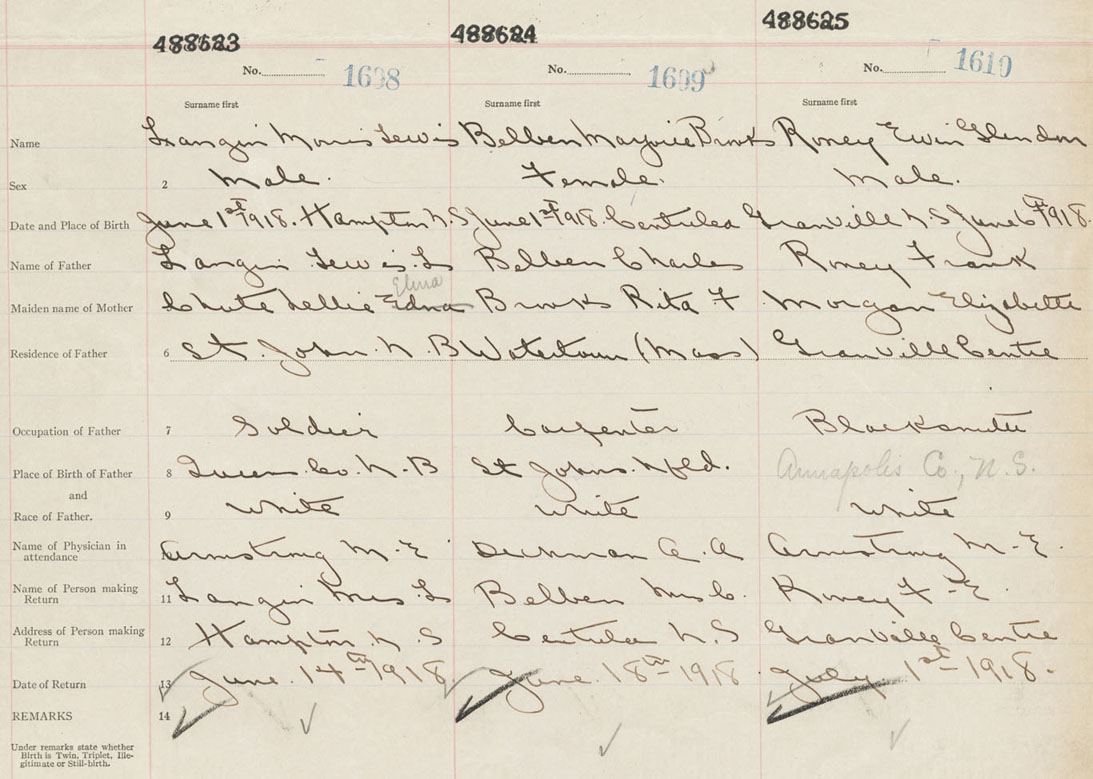 488623 488624 488625
No. 1608 No. 1609 No. 1610
Surname first Surname first Surname first
Name Langin Morris Lewis Belben Marjorie Brooks Roney Ewin Glendon
Sex 2 Male. Female. Male.
Date and Place of Birth June 1st 1918. Hampton N.S June 1st 1918. Centrelea Granville N S June 6th 1918.
Name of Father Langin Lewis. L Belben Charles Roney Frank
Elma
Maiden name of Mother Chute Nellie Edna Brooks Rita F Morgan Elizabeth
Residence of Father 6 St. John. N. B Watertown (Mass) Granville Centre
Occupation of Father 7 Soldier Carpenter Blacksmith
Place of Birth of Father 8 Queens. Co. N. B St Johns. Nfld. Annapolis Co., N.S.
and
Race of Father. 9 White White White
Name of Physician in
attendance Armstrong M. E A. A Armstrong M-E.
Name of Person making
Return 11 Langin Mrs. L Belben Mrs C. Roney F-E.
Address of Person making
Return 12 Hampton. N. S Centrelea N. S Granville Centre
Date of Return 13 June. 14th 1918. June. 18th 1918 July. 1st 1918.
REMARKS 14
Under remarks state whether
Birth is Twin, Triplet, Ille-
gitimate or Still-birth.